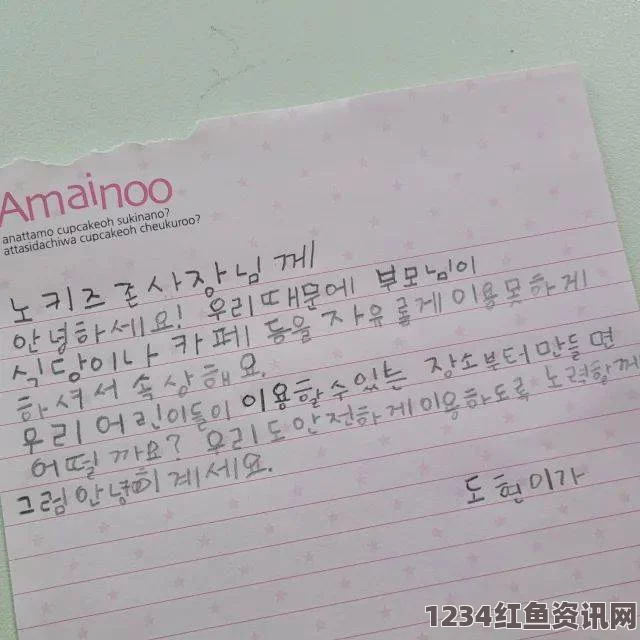 Amainoo
anattamo cupcakeoh sukinano?
attasidachiwa cupcakeoh cheukuroo?
노키즈존사장님께
안녕하세요! 우리때문에 부모님이
식당이나 카페 등을 자유롭게 이용못하게
하셔서 속상해요.
우리어린이들이 이용할수있는 장소부터만들면
어떨까요? 우리도안전하게이용하도록 노력할께
그럼안녕히계세요.
도현이가
1234红鱼资讯网